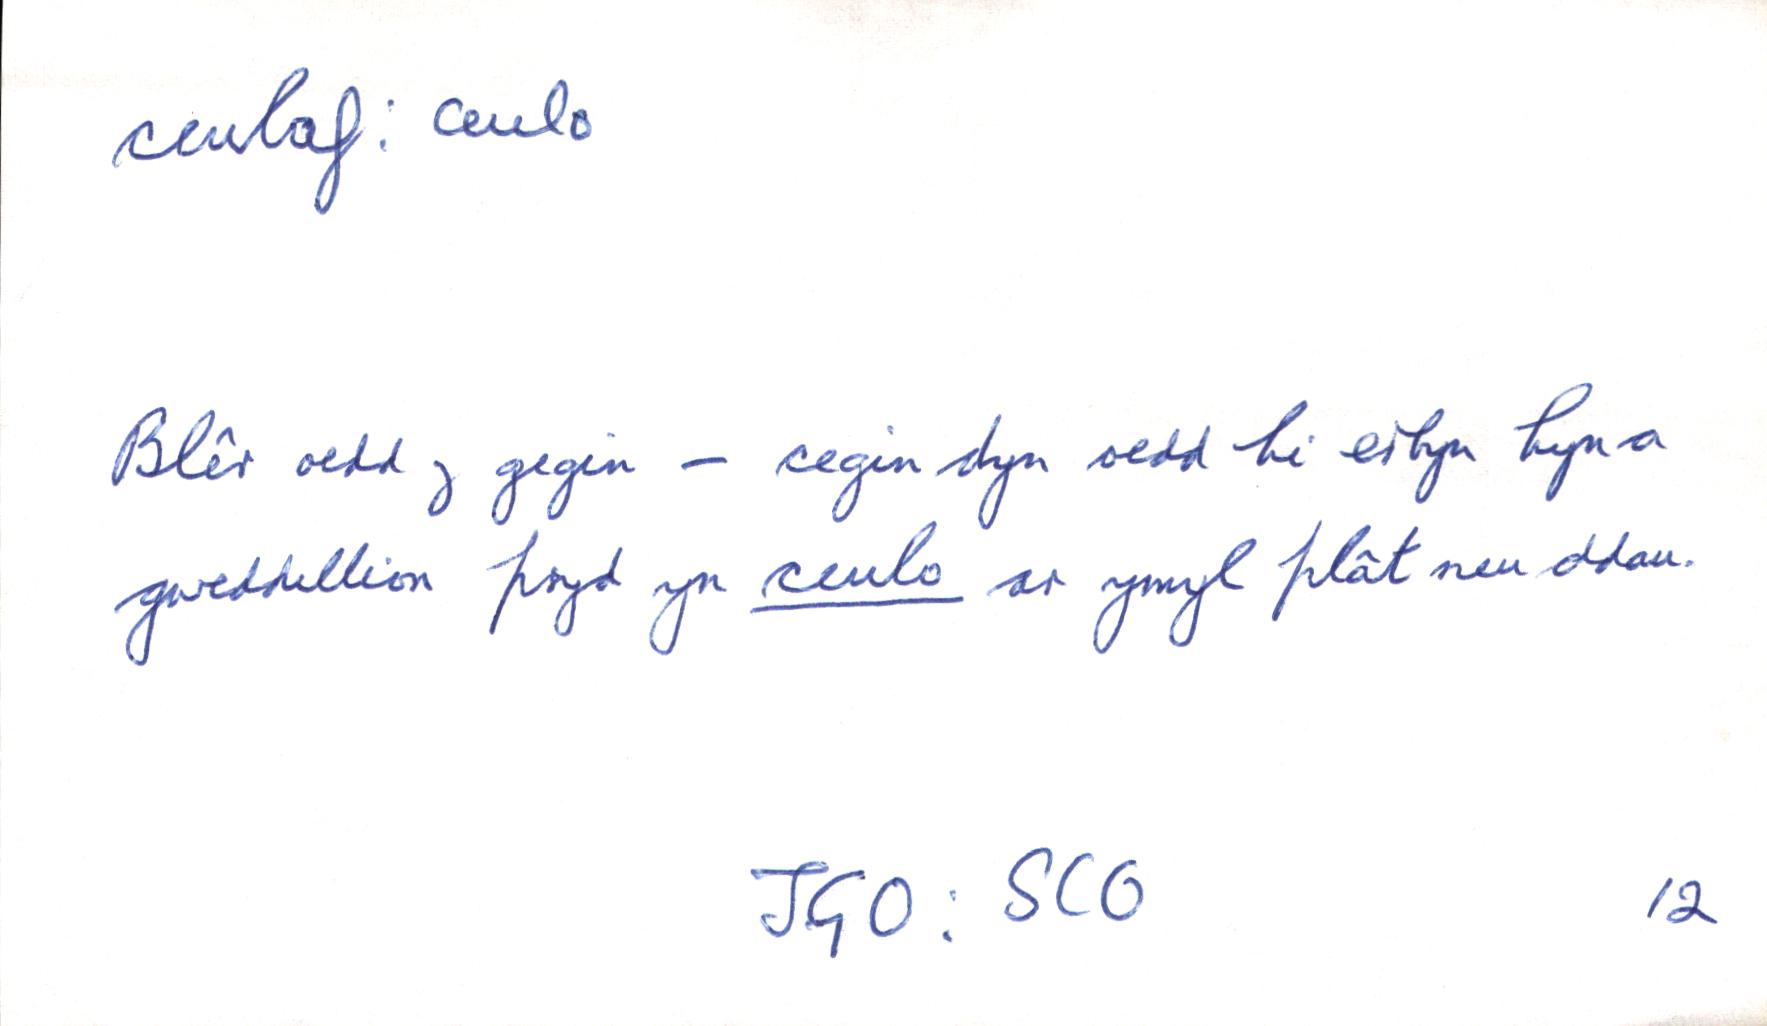 ceulaf: ceulo
Blêr oedd y gegin – cegin dyn oedd hi erbyn hyn a
gweddillion pryd yn ceulo ar ymyl plât neu ddau.
JGO: SCO
12